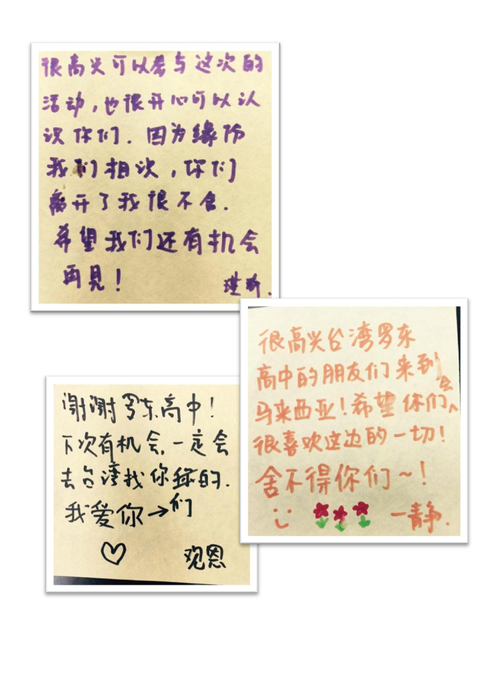 很高兴可以参与这次的
活动，也很开心可以认
识你们．因为缘份
我们相识，你们
离开了我很不舍．
希望我们还有机会
再見！
很高兴台湾罗东
高中的朋友们来到
马来西亚！希望你们会
很喜欢这边的一切！
舍不得你们～！
一静．
谢谢罗东高中！
下次有机会，一定会
去台湾找你 的．
我爱你→们
观恩